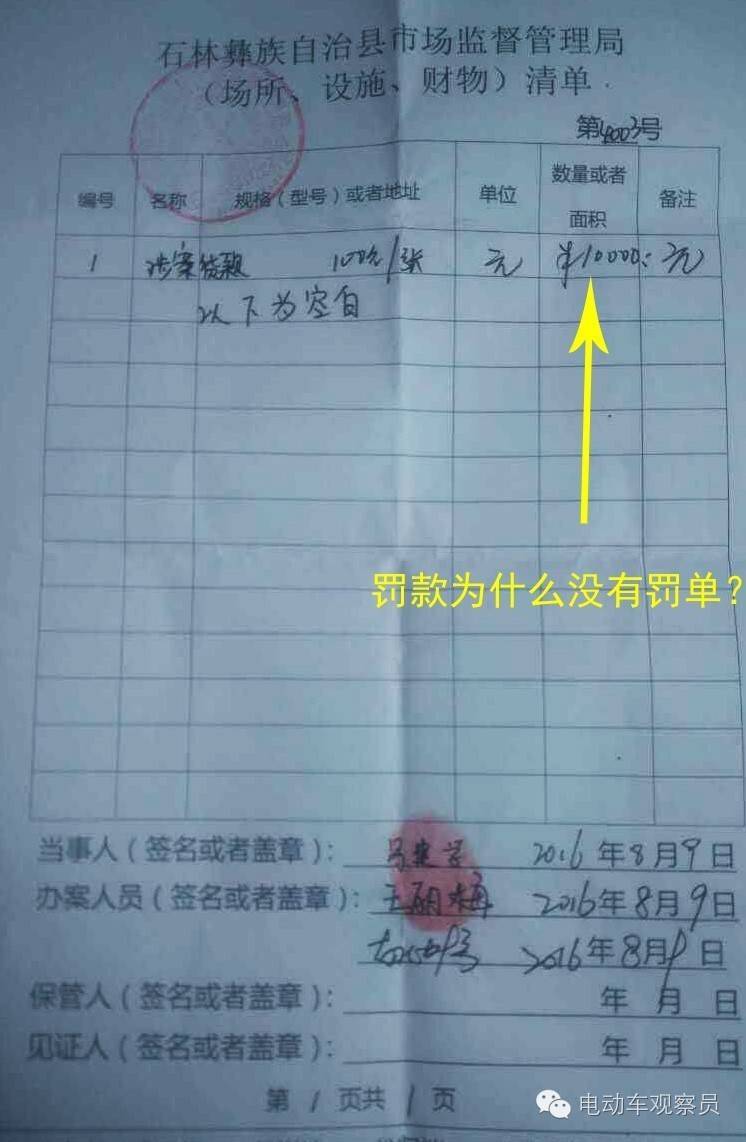 石林彝族自治县市场监督管理局
（场所、设施、财物）清单
第4003号
编号 名称 规格（型号）或者地址 单位 数量或者面积 备注
1 涉案货款 100元/张 元 ¥10000.元
以下为空白
罚款为什么没有罚单？
当事人（签名或者盖章）： 2016年8月9日
办案人员（签名或者盖章）：王丽梅 2016年8月9日
2016年8月9日
保管人（签名或者盖章）： 年 月 日
见证人（签名或者盖章）： 年 月 日
第 1 页共 1 页
电动车观察员